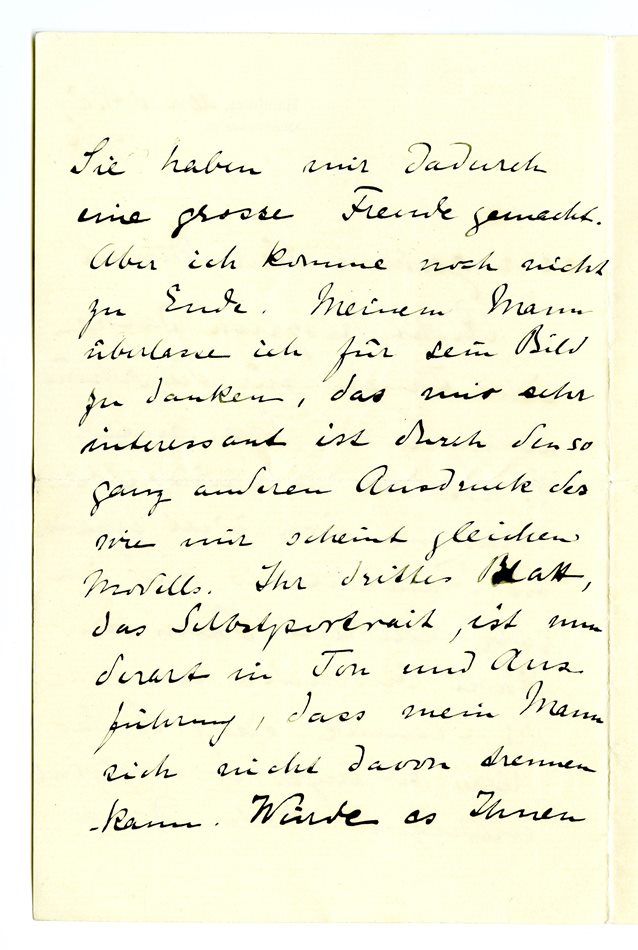 Sie haben mir dadurch
eine grosse Freude gemacht.
Aber ich komme noch nicht
zu Ende. Meinem Mann
überlasse ich für sein Bild
zu danken, das mir sehr
interessant ist durch den so
ganz anderen Ausdruck des
wie mir scheint gleichen
Modells. Ihr drittes Blatt,
das Selbstportrait, ist nun
derart in Ton und Aus
führung, dass mein Mann
sich nicht davon trennen
kann. Würde es Ihnen